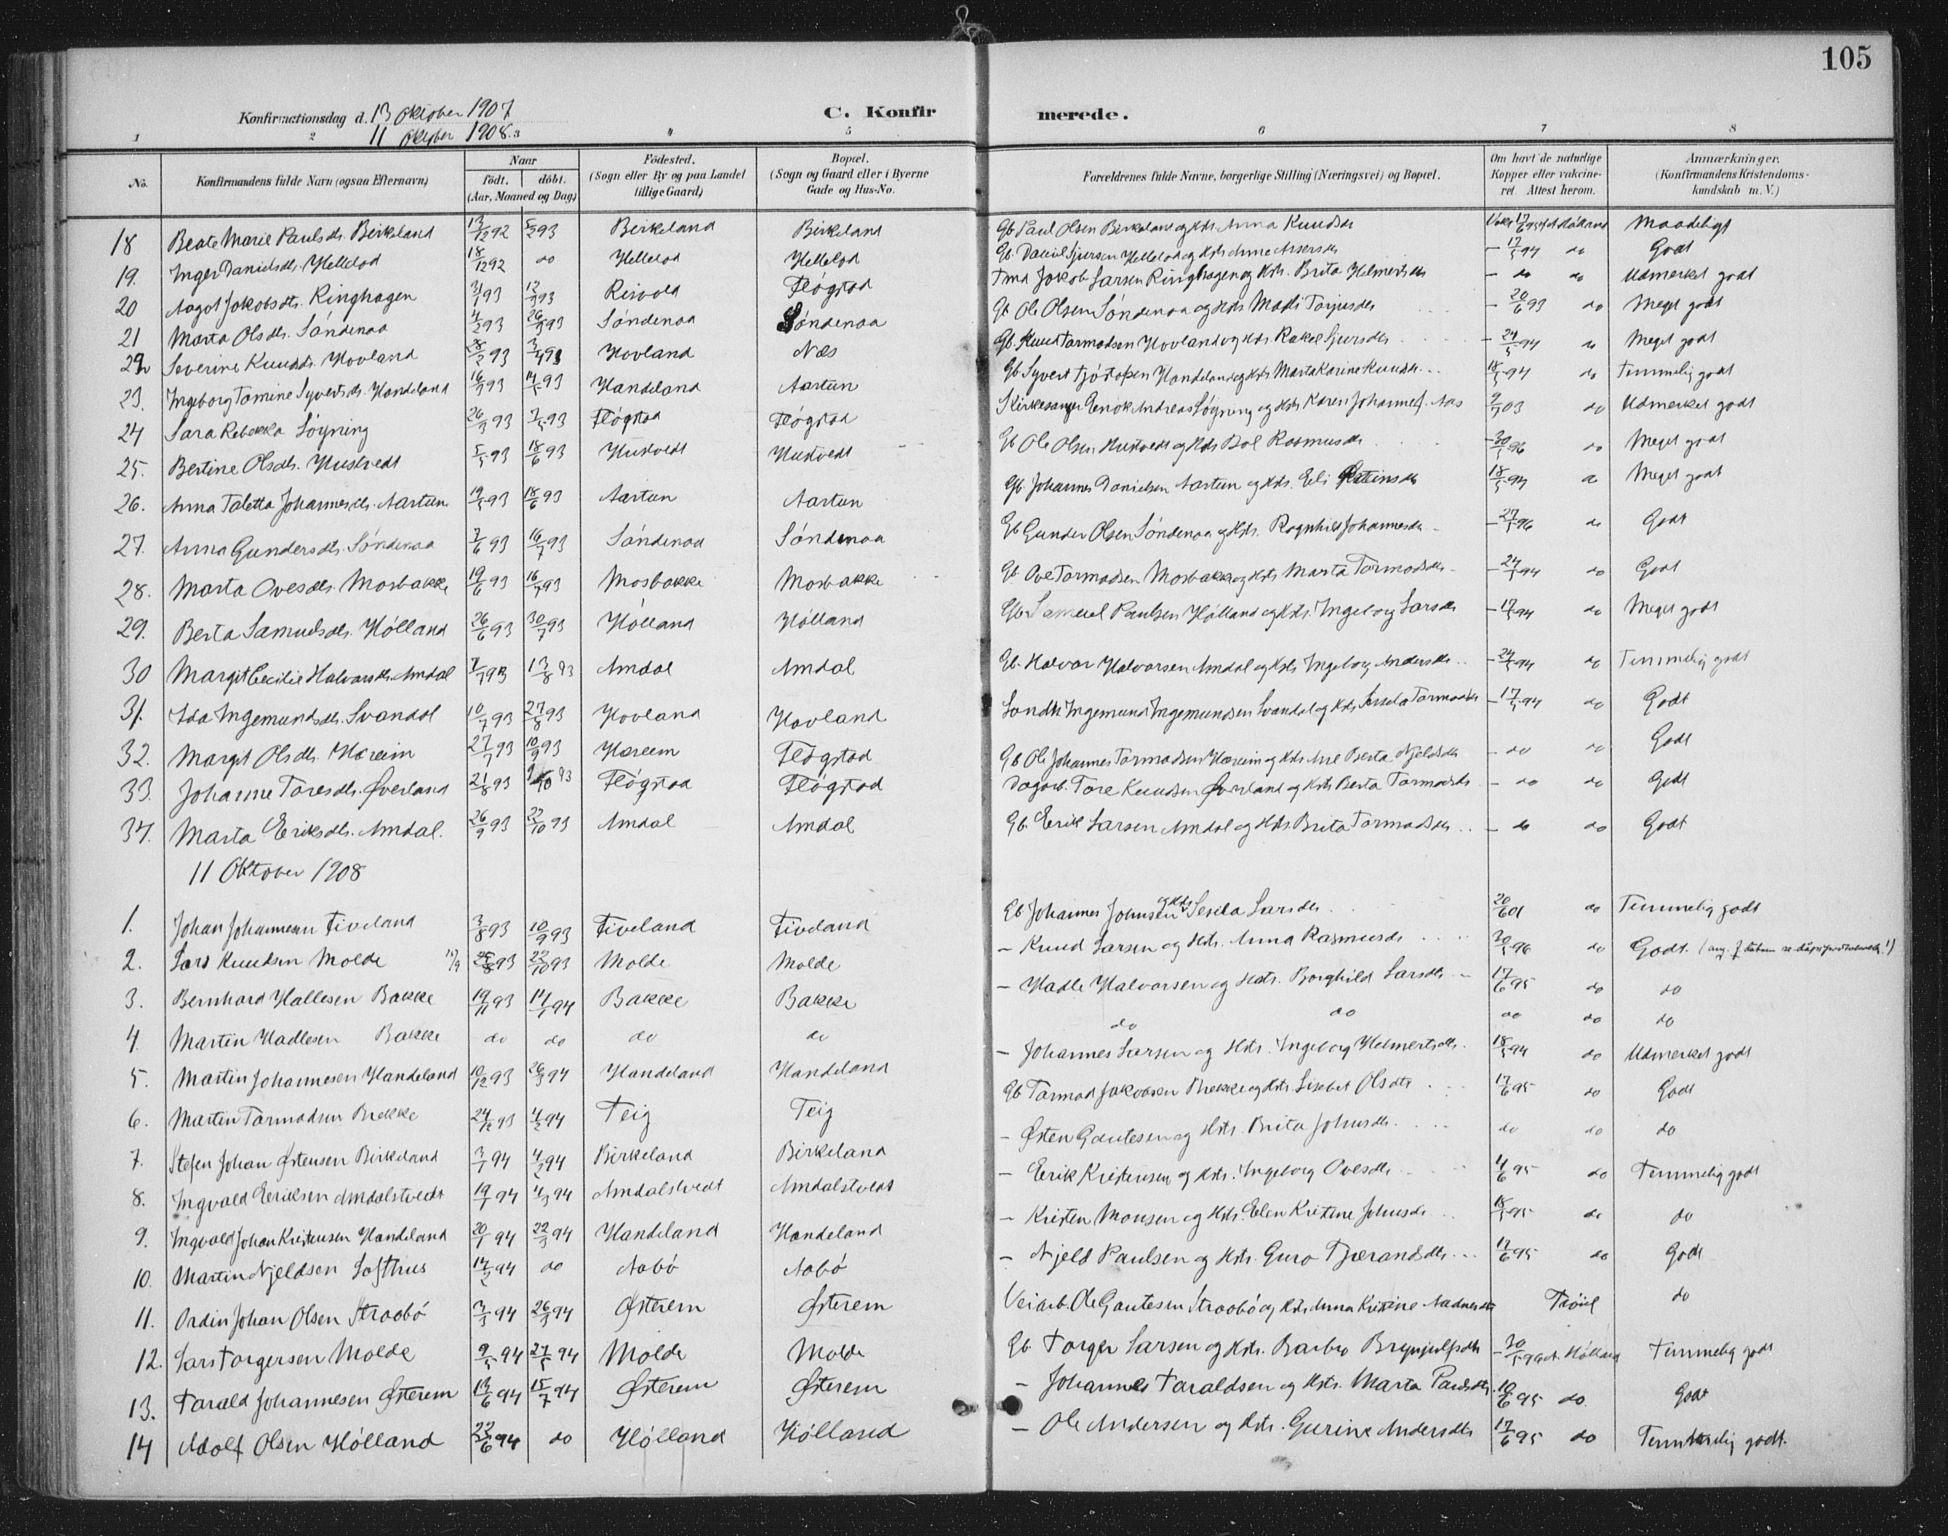 105
Konfirmationsdag d. 13 Oktober 1907
11 Oktober 1908
C. Konfirmerede.
1 2 3 4 5 6 7 8
No.
Konfirmandens fulde Navn (ogsaa Efternavn)
Naar
födt. döbt.
(Aar, Maaned og Dag)
Födested.
(Sogn eller By og paa Landet tillige Gaard)
Bopæl.
(Sogn og Gaard eller i Byerne Gade og Hus-No.
Forældrenes fulde Navne, borgerlige Stilling (Næringsvei) og Bopæl.
Om havt de naturlige Kopper eller vakcineret. Attest herom.
Anmærkninger.
(Konfirmandens Kristendomskundskab m. V.)
18 Beate Marie Paulsdtr. Birkeland 13/12 92 5/2 93 Birkeland Birkeland Gb Paul Olsen Birkeland og Hstr. Anna Knudsdtr Maadeligt
19. Inger Danielsdtr. Helleland 18/12 92 do Gb. Daniel 17/5 94 do Godt
20 Aagot Jakobsdtr. Ringhagen 31/1 93 12/3 93 Reivold Fløgstad Tmd Jakob Larsen Ringhagen og Hstr. Brita Helmertsdtr – do do Udmerket godt
21 Marta Olsdtr. Søndenaa 4/2 93 26/3 93 Søndenaa Søndenaa Gb Ole Olsen Søndenaa og Hstr Malli Torjusdtr – 20/6 93 do Meget godt
22 Severine Knudsdtr. Hovland 28/2 93 3/4 93 Hovland Næs Gb. Knud Tormodsen Hovland og Hstr. Rakel Sjursdtr – 24/5 94 do Meget godt
23. Ingeborg Tomine Syvertsdtr. Handeland 16/3 93 14/5 93 Handeland Aartun Gb Syvert Handeland og Hstr Marta Karine Knudsdtr. 18/5 94 do Temmelig godt
24 Sara Rebekka Løyning 26/3 93 7/5 93 Fløgstad Fløgstad Kirkesanger Enok Andreas Løyning og Hstr Karen Johanne f. Aas 9/7 03 do Udmerket godt
25. Bertine Olsdtr. Hustvedt 5/5 93 18/6 93 Hustvedt Hustvedt Gb Ole Olsen Hustvedt og Hstr Bol Rasmusdtr – 30/5 96 do Meget godt
26. Anna Taletta Johannesdtr. Aartun 19/5 93 18/6 93 Aartun Aartun Gb. Johannes Danielsen Aartun og Hstr. Eli 18/5 94 do Meget godt
27. Anna Gundersdtr. Søndenaa 7/6 93 16/7 93 Søndenaa Søndenaa Gb Gunder Olsen Søndenaa og Hstr. Ragnhild Johannesdtr – 27/5 96 do Godt
28. Marta Ovesdtr. Mosbakke 19/6 93 16/7 93 Mosbakke Mosbakke Gb Ove Tormodsen Mosbakke og Hstr Marta Tormodsdtr – 24/5 94 do Godt
29. Berta Samuelsdtr. Hølland 26/6 93 30/7 93 Hølland Hølland Gb Samuel Paulsen Hølland og Hstr. Ingeborg Larsdtr – 17/5 94 do Meget godt
30 Margit Cecilie Halvorsdtr. Amdal 7/7 93 13/8 93 Amdal Amdal Gb. Halvor Halvorsen Amdal og Hstr Ingeborg Andersdtr – 24/5 94 do Temmelig godt
31. Ida Ingemundsdtr. Svandal 10/7 93 27/8 93 Hovland Hovland Ingemund Ingemundsen Svandal og Hstr Sesela Tormodsdtr – 17/5 94 do Godt
32. Margit Olsdtr. Hareim 27/7 93 10/9 93 Hareim Fløgstad Gb Ole Johannes Tormodsen Hareim og Hstr Berta Njeldsdtr – do do Godt
33. Johanne Toresdtr. Øverland 21/8 93 Fløgstad Fløgstad Dagarb. Tore Knudsen Øverland og Hstr Berta Tormodsdtr – do do Godt
34. Marta Eriksdtr. Amdal. 26/9 93 22/10 93 Amdal Amdal Gb. Erik Larsen Amdal og Hstr. Brita Tormodsdtr – do do Godt
11 Oktober 1908
1. Johan Johannesen Fiveland 3/8 93 10/9 93 Fiveland Fiveland Gb Johannes Johnsen og Hstr Sesila Larsdtr 20/6 01 do Temmelig godt
2. Lars Knudsen Molde 17/9 93 22/10 93 Molde Molde – Knud Larsen og Hstr. Anna Rasmusdtr 30/5 96 do Godt.
3. Bernhard Hallesen Bakke 19/11 93 14/1 94 Bakke Bakke – Hadle Halvorsen og Hstr. Borghild Larsdtr 17/6 95 do do
4. Martin Hadlesen Bakke do do do do do do do do do
5. Martin Johannesen Handeland 10/12 93 26/3 94 Handeland Handeland – Johannes Larsen og Hstr. Ingeborg Helmertsdtr. 18/5 94 do Udmerket godt
6. Martin Tormodsen Brekke 24/12 93 4/2 94 Teig Teig Gb Tormod Jakobsen Brekke og Hstr Lisebet Olsdtr 17/6 95 do Godt
7. Stefen Johan Østensen Birkeland 3/1 94 4/2 94 Birkeland Birkeland – Østen Gautesen og Hstr. Brita Johnsdtr. do do do
8. Ingvald Eriksen Amdalstvedt 19/1 94 4/3 94 Amdalstvedt Amdalstvedt – Erik Kristensen og Hstr. Ingeborg Ovesdtr 4/6 95 do Temmelig godt
9. Ingvald Johan Kristensen Handeland 20/1 94 22/3 94 Handeland Handeland – Kristen Monsen og Hstr. Elen Kristine Johnsdtr 18/5 95 do do
10. Martin Njeldsen Lofthus 14/2 94 do Aabø Aabø – Njeld Paulsen og Hstr. Guro Tjerandsdtr. 17/6 95 do Godt
11. Ordin Johan Olsen Straabø 3/3 94 26/3 94 Østerem Østerem Veiarb. Ole Gautesen Straabø og Hstr Anna Kristine do
12. Lars Torgersen Molde 9/5 94 27/5 94 Molde Molde Gb Torger Larsen og Hstr. Barbro Brynjulfsdtr – 30/5 96 att. Hølland Temmelig godt
13. Tarald Johannesen Østerem 13/6 94 15/7 94 Østerem Østerem – Johannes Taraldsen og Hstr. Marta Paulsdtr. 10/6 95 do. Godt
14 Adolf Olsen Hølland 22/6 94 do Hølland Hølland – Ole Andersen og Hstr. Gurine Andersdtr 17/6 95 do Temmelig godt.